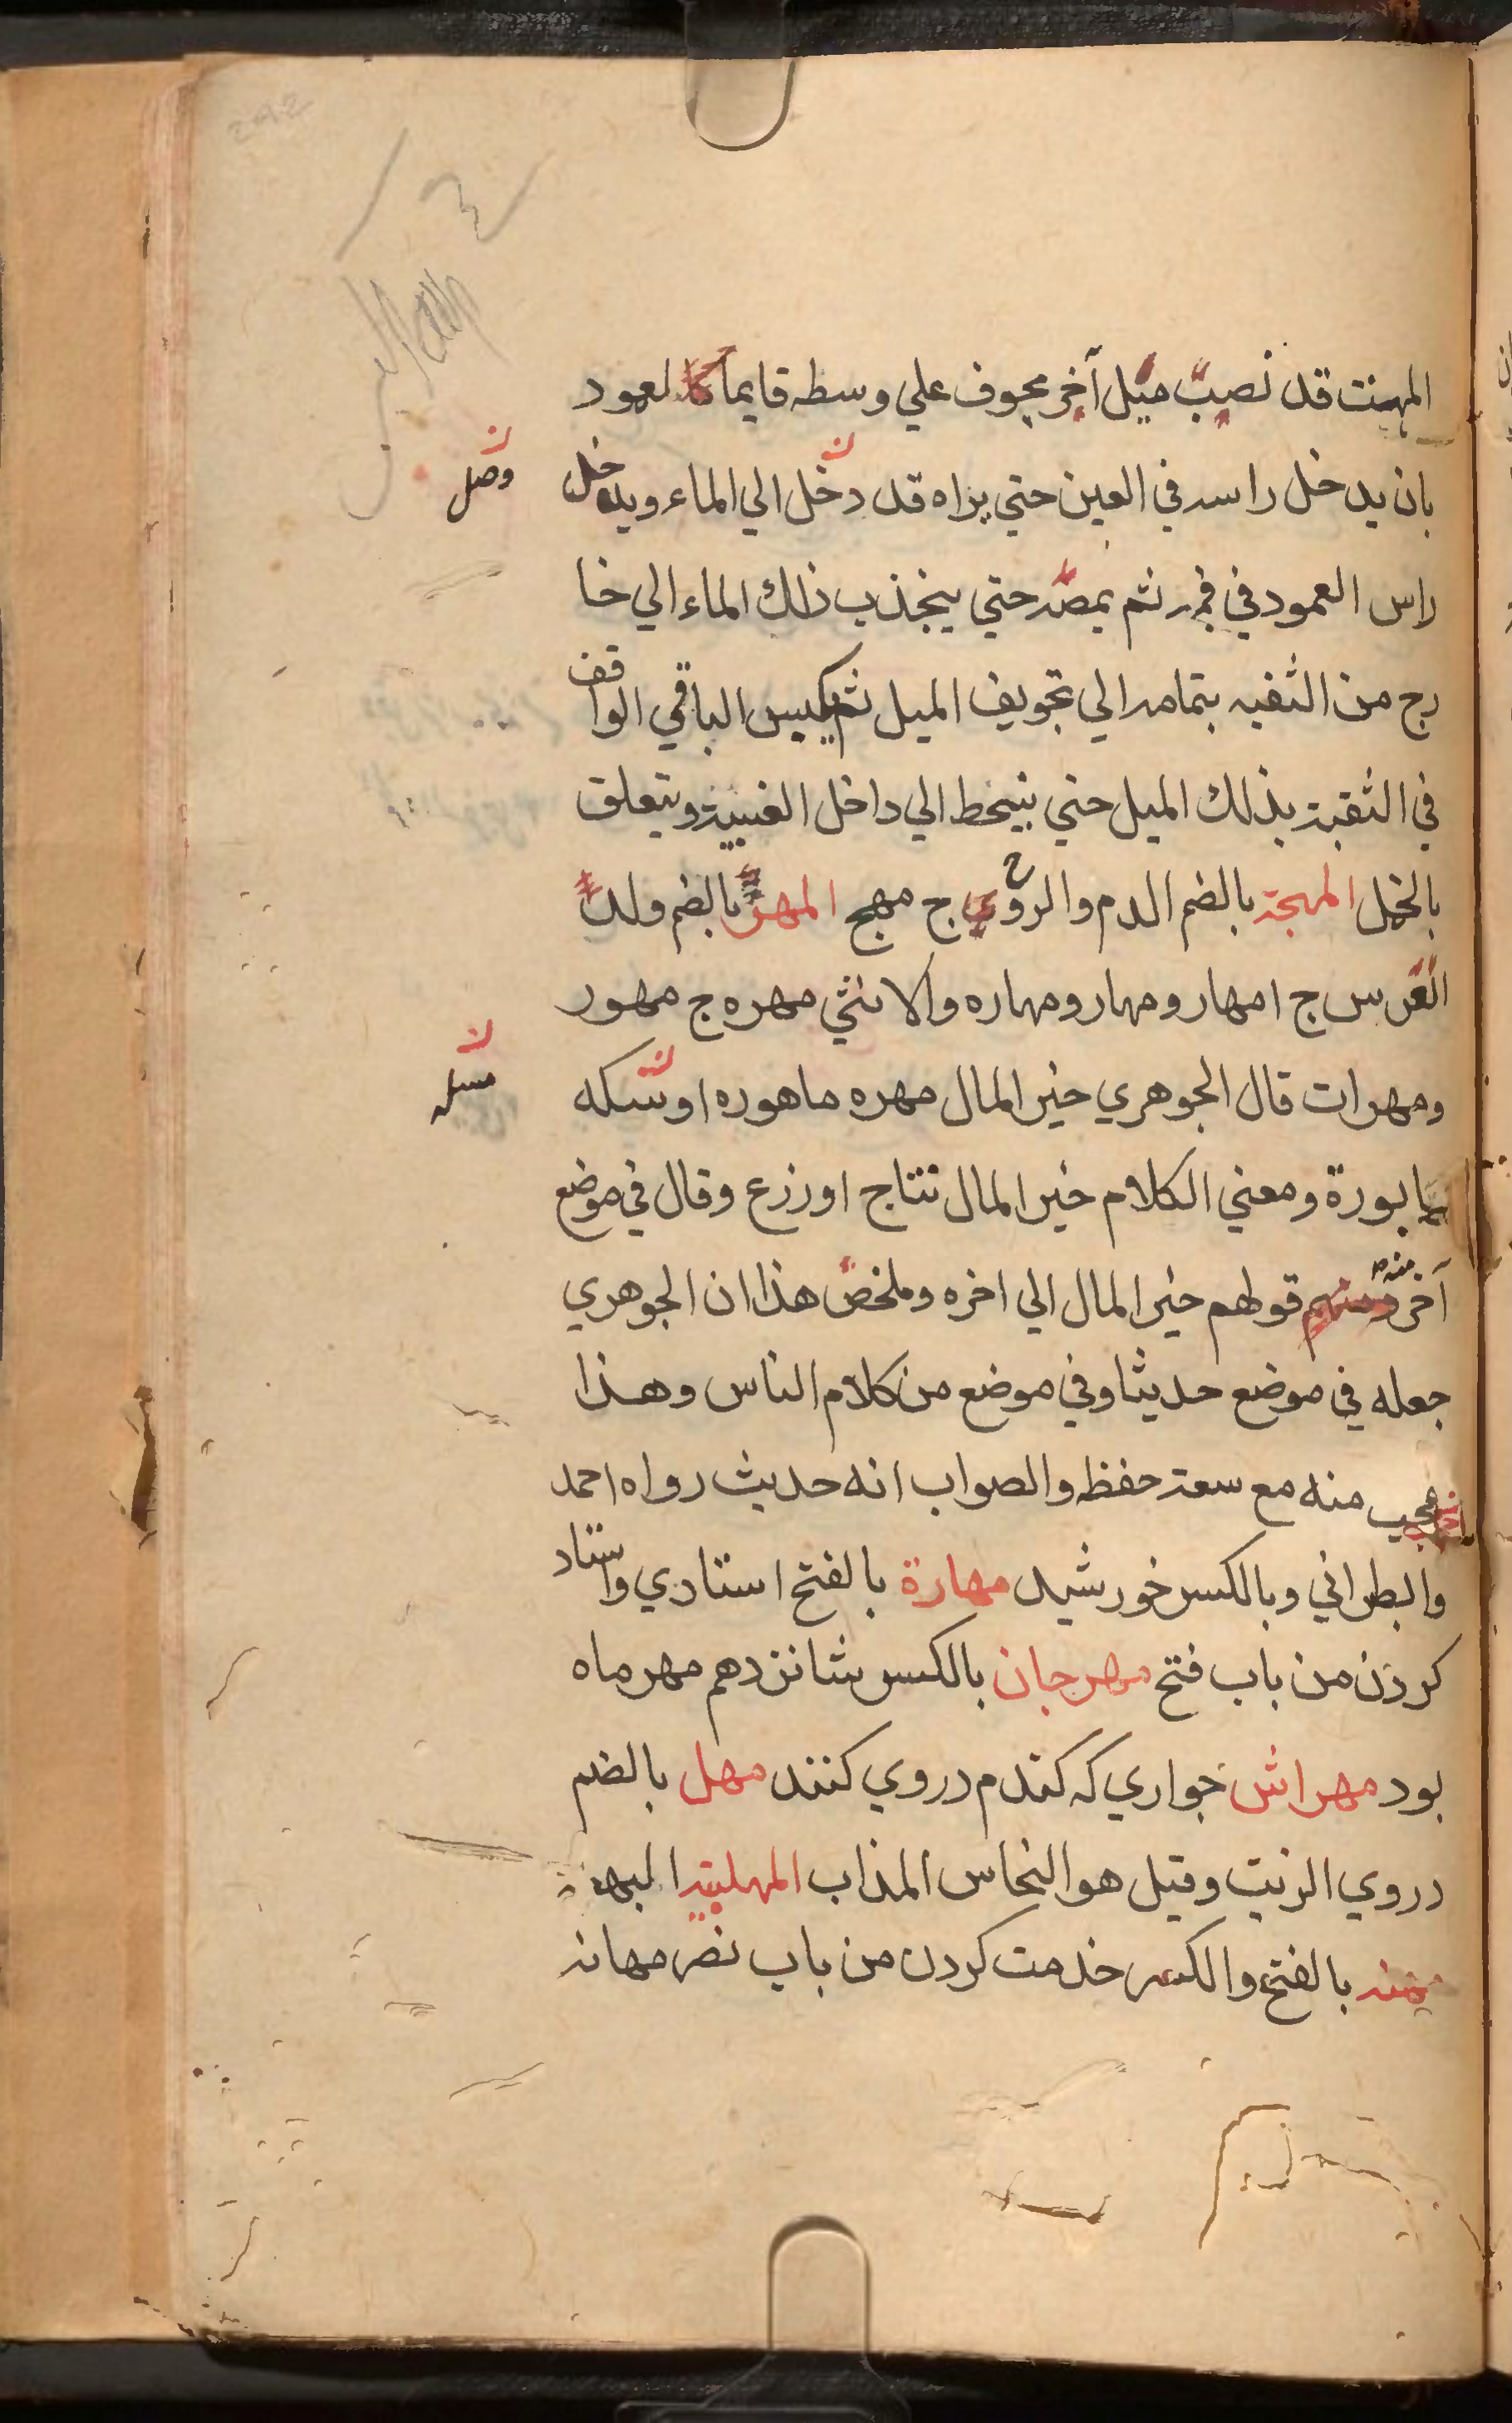 المهت قد نصب ميل آخر مجوف علي وسطه قايما كالعمود
بان يدخل راسه في العين حتي يراه قد دخل الي الماء ويدخل
وصل
راس العمود في فمه ثم يمصه حتي ينجذب ذلك الماء الي خا
رج من الثقبه بتمامه الي تجويف الميل ثم يكبس الباقي الواقف
في الثقبة بذلك الميل حتي ينحط الي داخل العنبية ويتعلق
بالخمل المهجة بالضم الدم والروح ج مهج المهر بالضم ولد
الفرس ج امهار ومهار ومهاره والانثي مهره ج مهور
ومهرات قال الجوهري خير المال مهره ماهوره او سكه
مسلم
مابورة ومعني الكلام خير المال نتاج او زرع وقال في موضع
آخر ومنه قولهم خير المال الي اخره وملخص هذا ان الجوهري
جعله في موضع حديثا وفي موضع من كلام الناس وهذا
عجيب منه مع سعة حفظه والصواب انه حديث رواه احمد
والبطراني وبالكسر خورشيد مهارة بالفتح استادي واستاد
كردن من باب فتح مهرجان بالكسر شانزدهم مهر ماه
بود مهراش جواري كه كندم دروي كنند مهل بالضم
دروي الزيت وقيل هو النحاس المذاب المهلبيه
مهنه بالفتح والكسر خدمت كردن من باب نصر مهانه